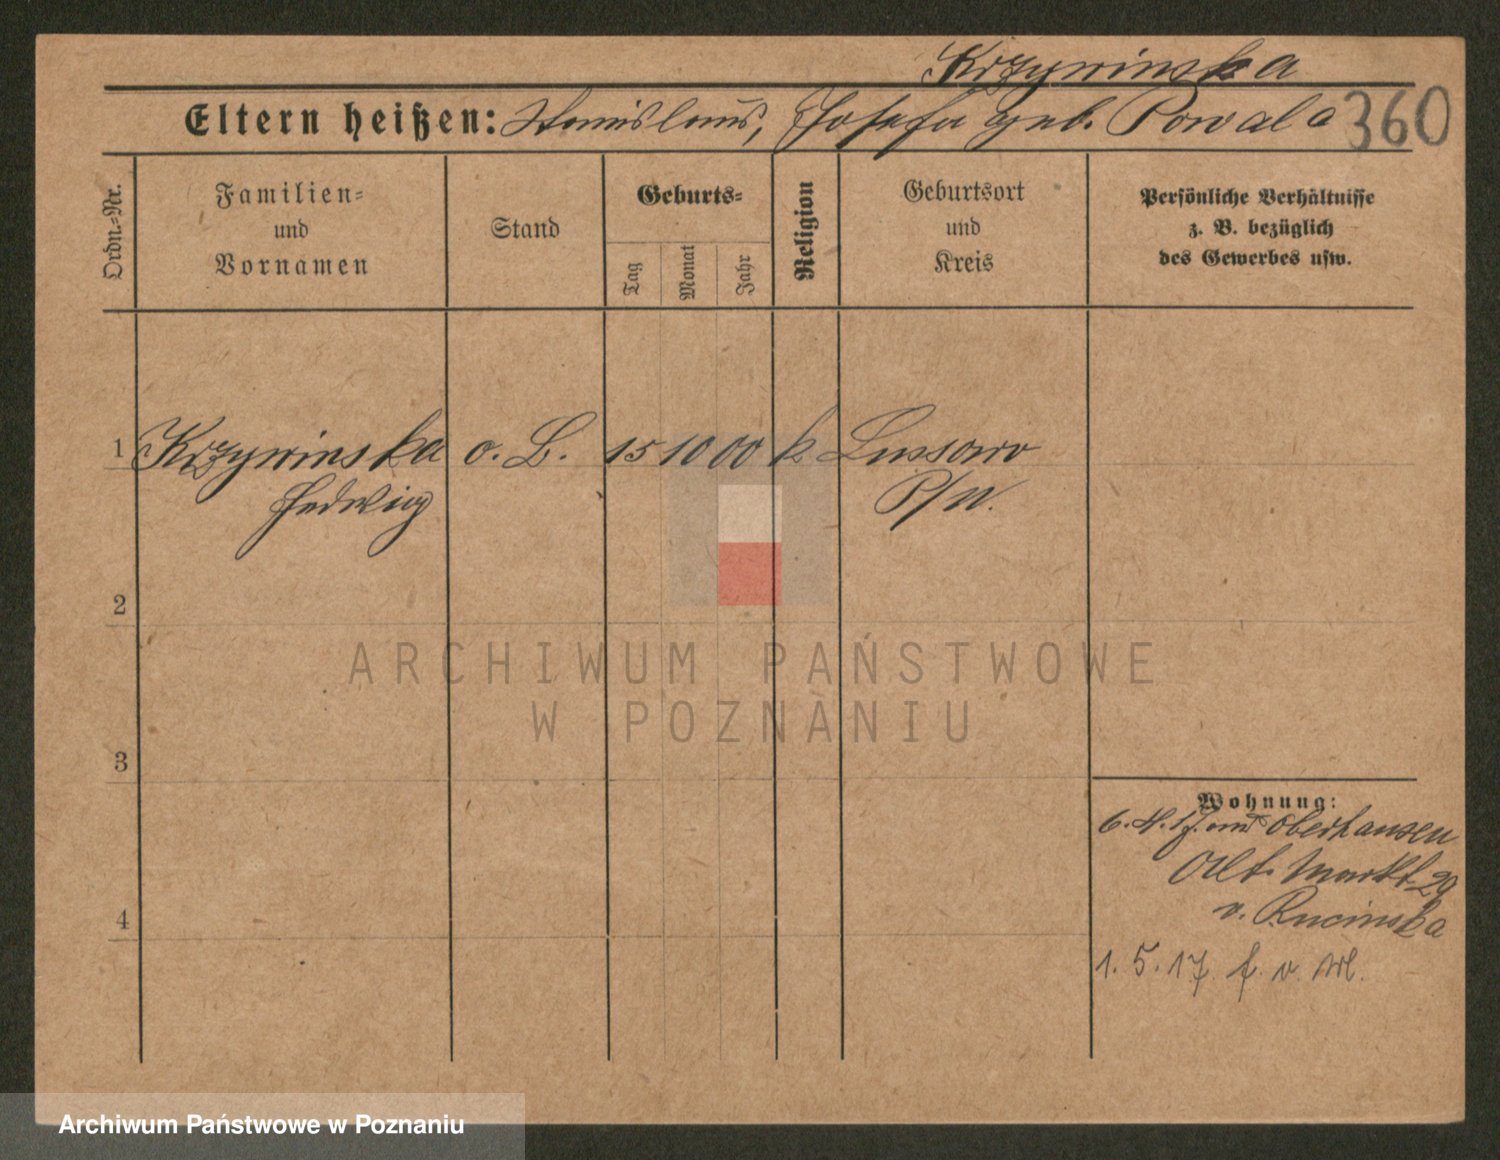 Krzywinska
Eltern heißen: Stanislaus, Josefa geb. Powala 360
Ordn.-Nr.
Familien-
und
Vornamen
Stand
Geburts-
Tag
Monat
Jahr
Religion
Geburtsort
und
Kreis
Persönliche Verhältnisse
z. B. bezüglich
des Gewerbes usw.
1 Krzywinska o. B. 15 10 00 k Lussowo
Hedwig P/W.
2
ARCHIWUM PAŃSTWOWE
W POZNANIU
3
Wohnung:
6. 4. 17. Oberhausen
Alt. Markt 29
v. Rucinska
4
1. 5. 17. f. v. M.
Archiwum Państwowe w Poznaniu